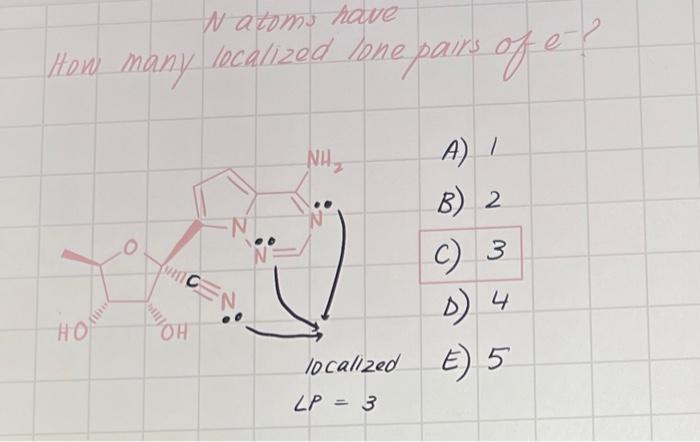 N atoms have
How many localized lone pairs of e-?
NH2
A) 1
B) 2
N
N
N
O
C) 3
C
N
D) 4
HO
OH
localized
E) 5
LP = 3